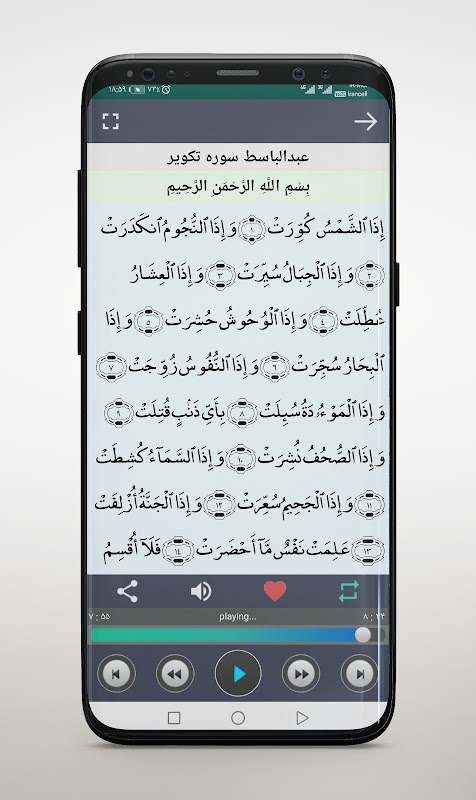 ۱۸:۵۹ ۷۳٪
Irancell
عبدالباسط سوره تکویر
بِسْمِ اللَّهِ الرَّحْمَنِ الرَّحِيمِ
إِذَا الشَّمْسُ كُوِّرَتْ ۝١ وَإِذَا النُّجُومُ انكَدَرَتْ
۝٢ وَإِذَا الْجِبَالُ سُيِّرَتْ ۝٣ وَإِذَا الْعِشَارُ
عُطِّلَتْ ۝٤ وَإِذَا الْوُحُوشُ حُشِرَتْ ۝٥ وَإِذَا
الْبِحَارُ سُجِّرَتْ ۝٦ وَإِذَا النُّفُوسُ زُوِّجَتْ ۝٧
وَإِذَا الْمَوْءُۥدَةُ سُئِلَتْ ۝٨ بِأَيِّ ذَنْبٍ قُتِلَتْ ۝٩
وَإِذَا الصُّحُفُ نُشِرَتْ ۝١٠ وَإِذَا السَّمَاءُ كُشِطَتْ
۝١١ وَإِذَا الْجَحِيمُ سُعِّرَتْ ۝١٢ وَإِذَا الْجَنَّةُ أُزْلِفَتْ
۝١٣ عَلِمَتْ نَفْسٌ مَّآ أَحْضَرَتْ ۝١٤ فَلَآ أُقْسِمُ
۷:۵۵ playing... ۸:۲۴